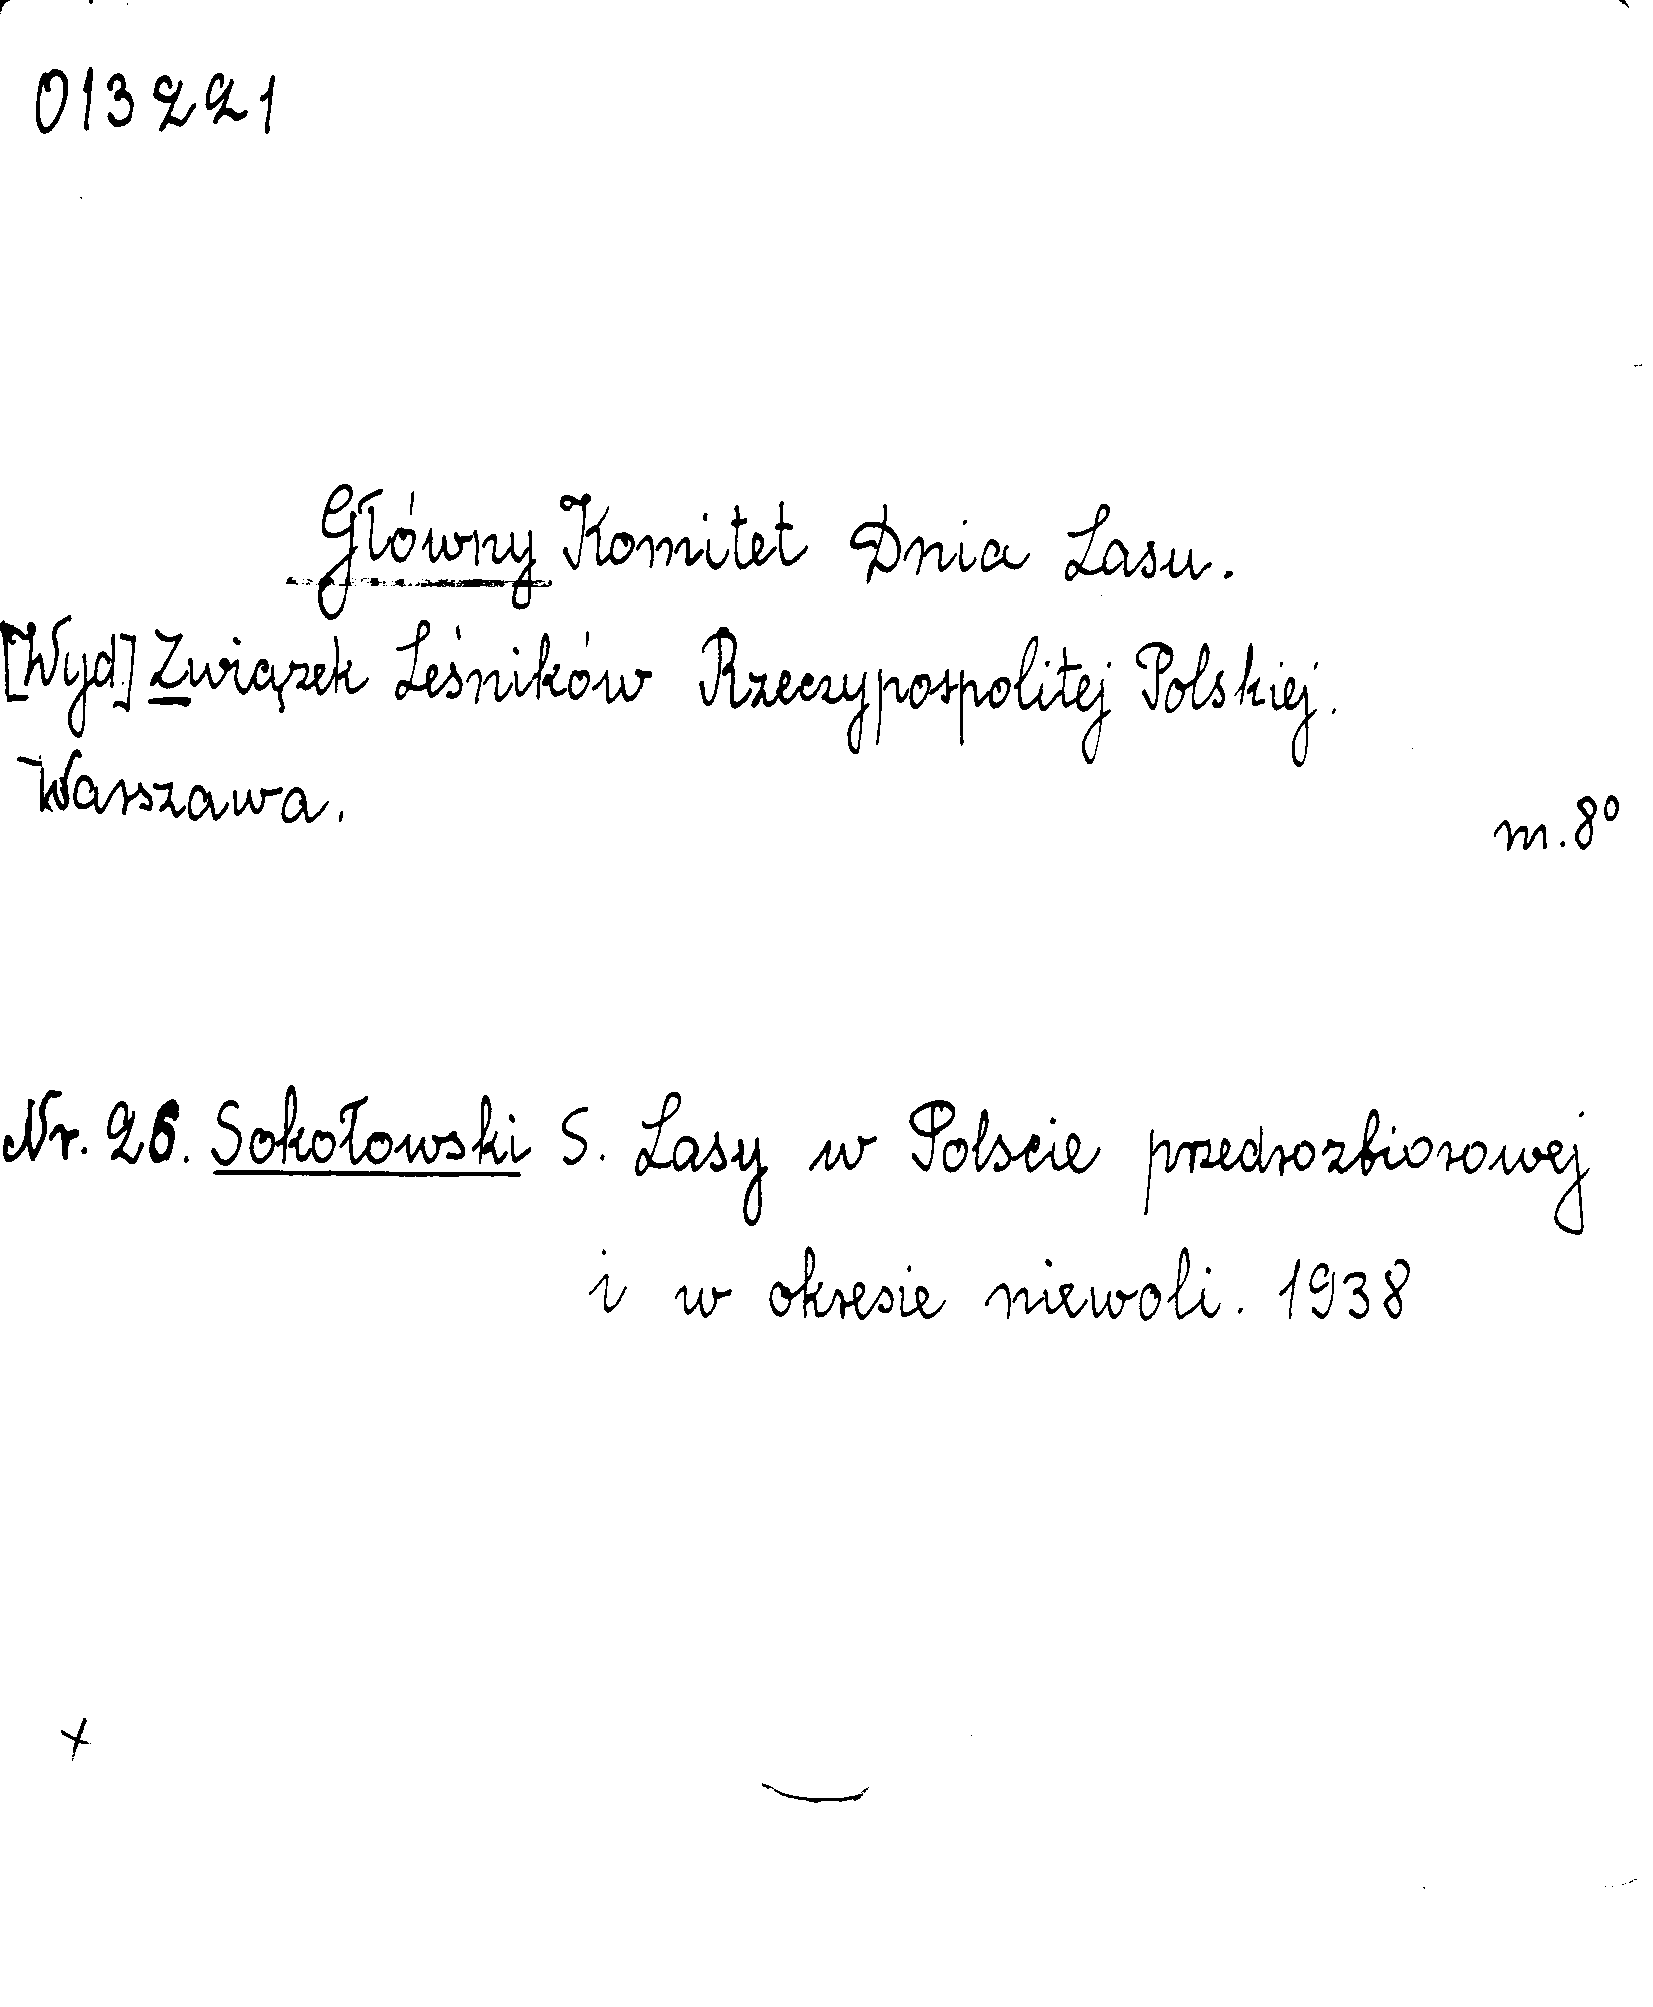 013221
Główny Komitet Dnia Lasu.
[Wyd.] Związek Leśników Rzeczypospolitej Polskiej.
Warszawa.
m. 8°
Nr. 26. Sokołowski S. Lasy w Polscie przedrozbiorowej
i w okresie niewoli. 1938
x